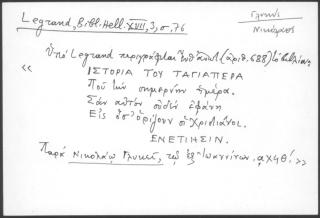 Legrand, Bibl. Hell. XVII, 3, σ. 76
Γλυκύς
Νικόλαος
Ὑπὸ Legrand περιγράφεται ἐνθάδε (ἀριθ. 688) τὸ βιβλίον
« ΙΣΤΟΡΙΑ ΤΟΥ ΤΑΓΙΑΠΕΡΑ
Ποῦ τὴν σημερινὴν ἡμέρα.
Σὰν αὐτὸν οὐδεὶς ἐφάνη
Εἰς ὅσ' ὁρίζουν οἱ Χριστιανοί.
ΕΝΕΤΙΗΣΙΝ.
Παρὰ Νικολάῳ Γλυκεῖ, τῷ ἐξ Ἰωαννίνων. αχϟθ΄. »